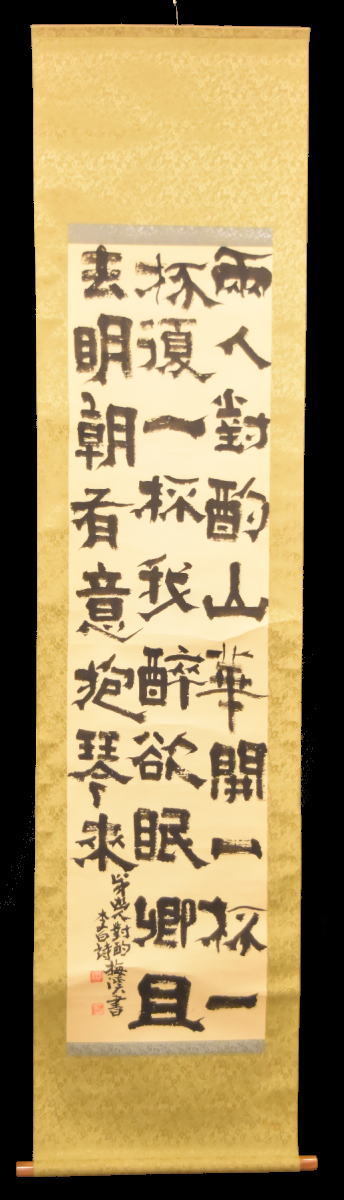 兩人對酌山華開一杯一
杯復一杯我醉欲眠卿且
去明朝有意抱琴來
對酌梅溪書
李白詩